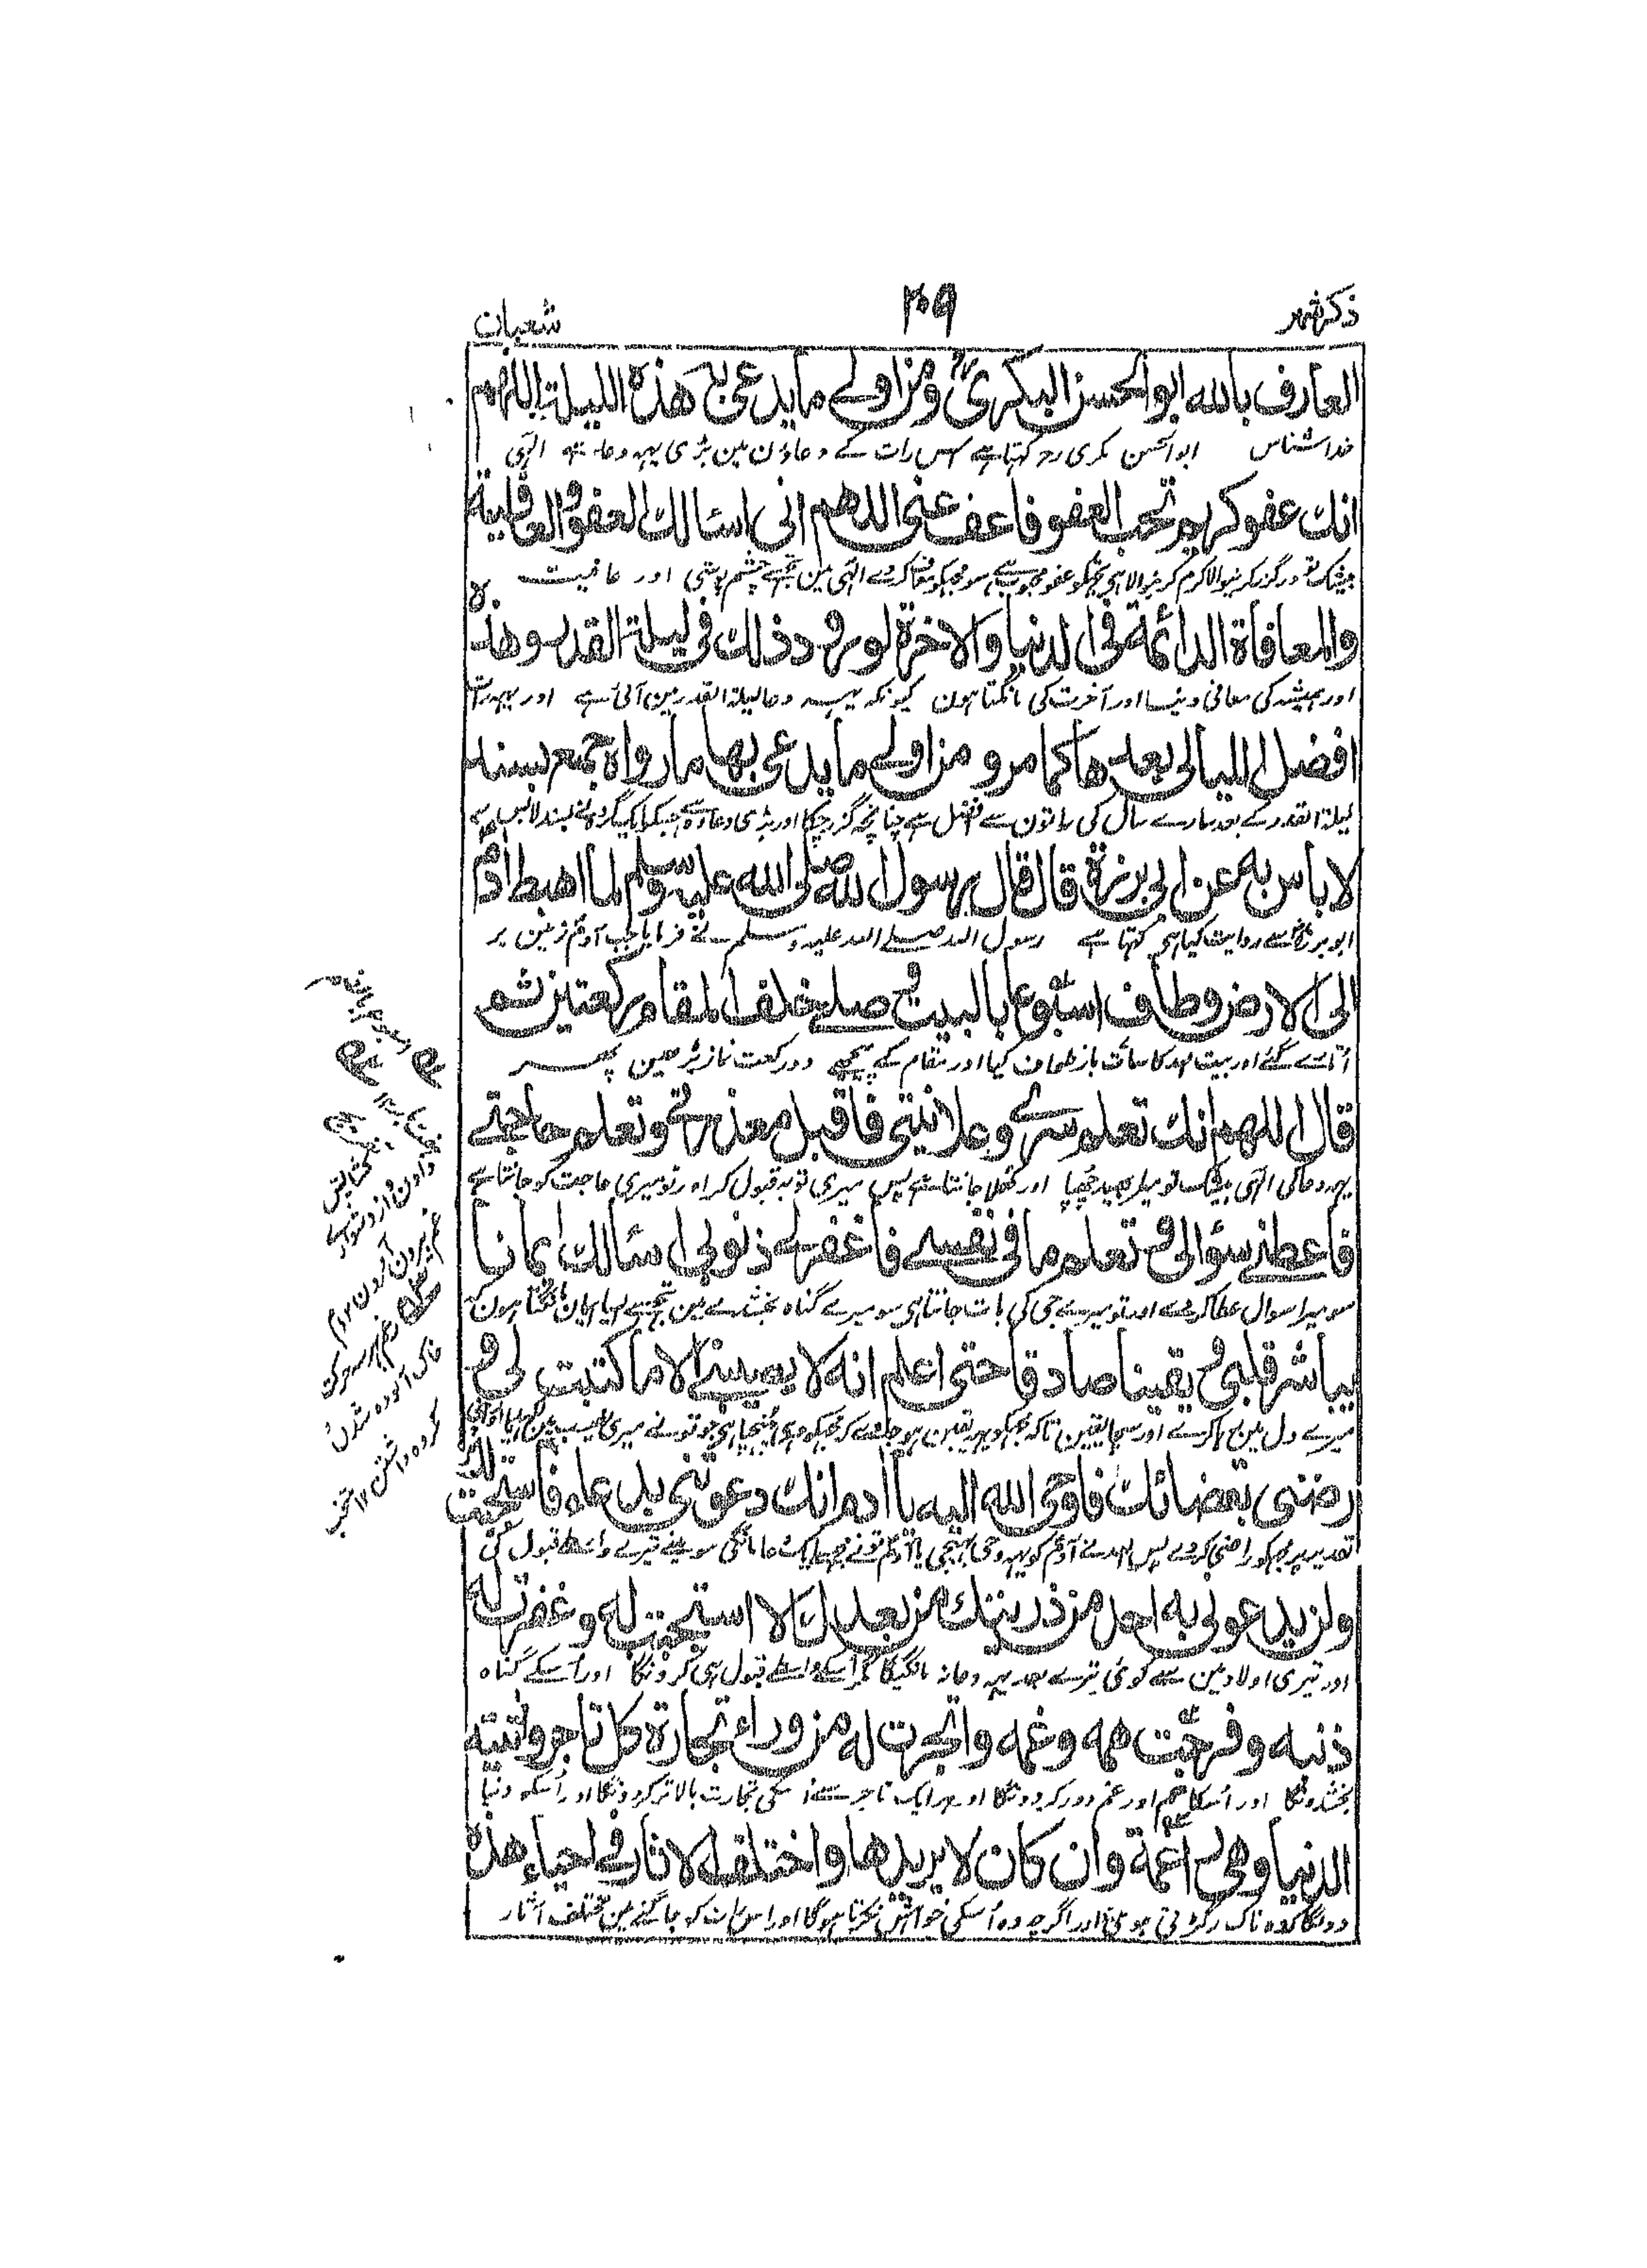 ذکر شهر ۲۰۹ شعبان
العارف بالله ابوالحسن البکری رح ومن اولی ما یدعی به هذه اللیلة اللهم
خداشناس ابوالحسن بکری رح کہتا ہے اس رات کے دعاؤن مین بڑی یہہ دعا ہے الٰہی
انك عفو کریم تحب العفو فاعف عنی اللهم انی اسالك العفو والعافیة
بیشک تو درگزر کرنیوالا کرم کرنیوالا ہی تجکو عفو محبوب ہے سو مجہکو معاف کردے الٰہی مین تجہسے چشم پوشی اور عافیت
والمعافاة الدائمة فی الدنیا والاخرة لورود ذلك فی لیلة القدر وهذه لا
اور ہمیشہ کی معافی دنیا اور آخرت کی مانگتا ہون کیونکہ یہہ دعا لیلة القدر مین آئی ہے اور یہہ رات
افضل اللیالی بعدها کما مر و من اولی ما یدعی بها ما رواه جمع بسند
لیلة القدر کے بعد سارے سال کی راتون سے افضل ہے چنانچہ گزر چکا اور بڑی دعا وہ ہے جسکو ایک گروہ نے بسند لاباس بہ
لا باس به عن ابی برزة قال قال رسول الله صلی الله علیه وسلم لما اهبط ادم
ابو برزہ سے روایت کیا ہی کہتا ہے رسول اللہ صلے اللہ علیہ وسلم نے فرمایا جب آدم زمین پر
الی الارض وطاف اسبوعا بالبیت وصلے خلف المقام رکعتین ثم
اتارے گئے اور بیت اللہ کا سات بار طواف کیا اور مقام کے پیچھے دو رکعت نماز پڑھین پھر
قال اللهم انك تعلم سری وعلانیتی فاقبل معذرتی وتعلم حاجتی
یہہ دعا کی الٰہی بیشک تو میرا بھید چھپا اور کھلا جانتا ہے پس میری توبہ قبول کر اور تو میری حاجت کو جانتا ہے
فاعطنی سؤالی وتعلم ما فی نفسے فاغفر لی ذنوبی اسئالك ایمانا
سو میرا سوال عطا کردے اور تو میرے جی کی بات جانتا ہی سو میرے گناہ بخشدے مین تجہسے ایسا ایمان مانگتا ہون کہ
یباشر قلبی ویقینا صادقا حتی اعلم انه لا یصیبنی الا ما کتبت لی و
میرے دل مین جا کرے اور سچا یقین تاکہ مجہکو یہہ یقین ہو جاوے کہ مجہکو وہی پہنچتا ہی جو تو نے میری نصیب مین لکہدیا اور اپنی
رضنی بقضائك فاوحی الله الیه یا ادم انك دعوتنی بدعاء فاستجبت لك
تقدیر پر مجہکو راضی کردے پس اللہ نے آدم کو یہہ وحی بھیجی یا آدم تو نے مجہسے ایک دعا مانگی سو مینے تیرے واسطے قبول کی
ولن یدعونی به احد من ذریتك من بعدك الا استجبت له و غفرت له
اور تیری اولاد مین سے کوئی تیرے بعد یہہ دعا نہ مانگیگا مگر اسکے واسطے قبول ہی کرونگا اور اسکے گناہ
ذنبه و فرجت همه وغمه واتجرت له من وراء تجارة کل تاجر واتته
بخشدونگا اور اسکا ہم اور غم دور کردونگا اور ہر ایک تاجر سے اسکی تجارت بالاتر کردونگا اور اسکو دنیا
الدنیا وهی راغمة وان کان لا یریدها واختلف الاثار فی احیاء هذه
دونگا کہ وہ ناک رگڑتی ہوئی اور اگرچہ وہ اسکی خواہش نکرتا ہوگا اور اس رات کو جاگنے مین مختلف آثار
بخشایش
دادن
غم بیرون آوردن
خاک آلودہ شدن